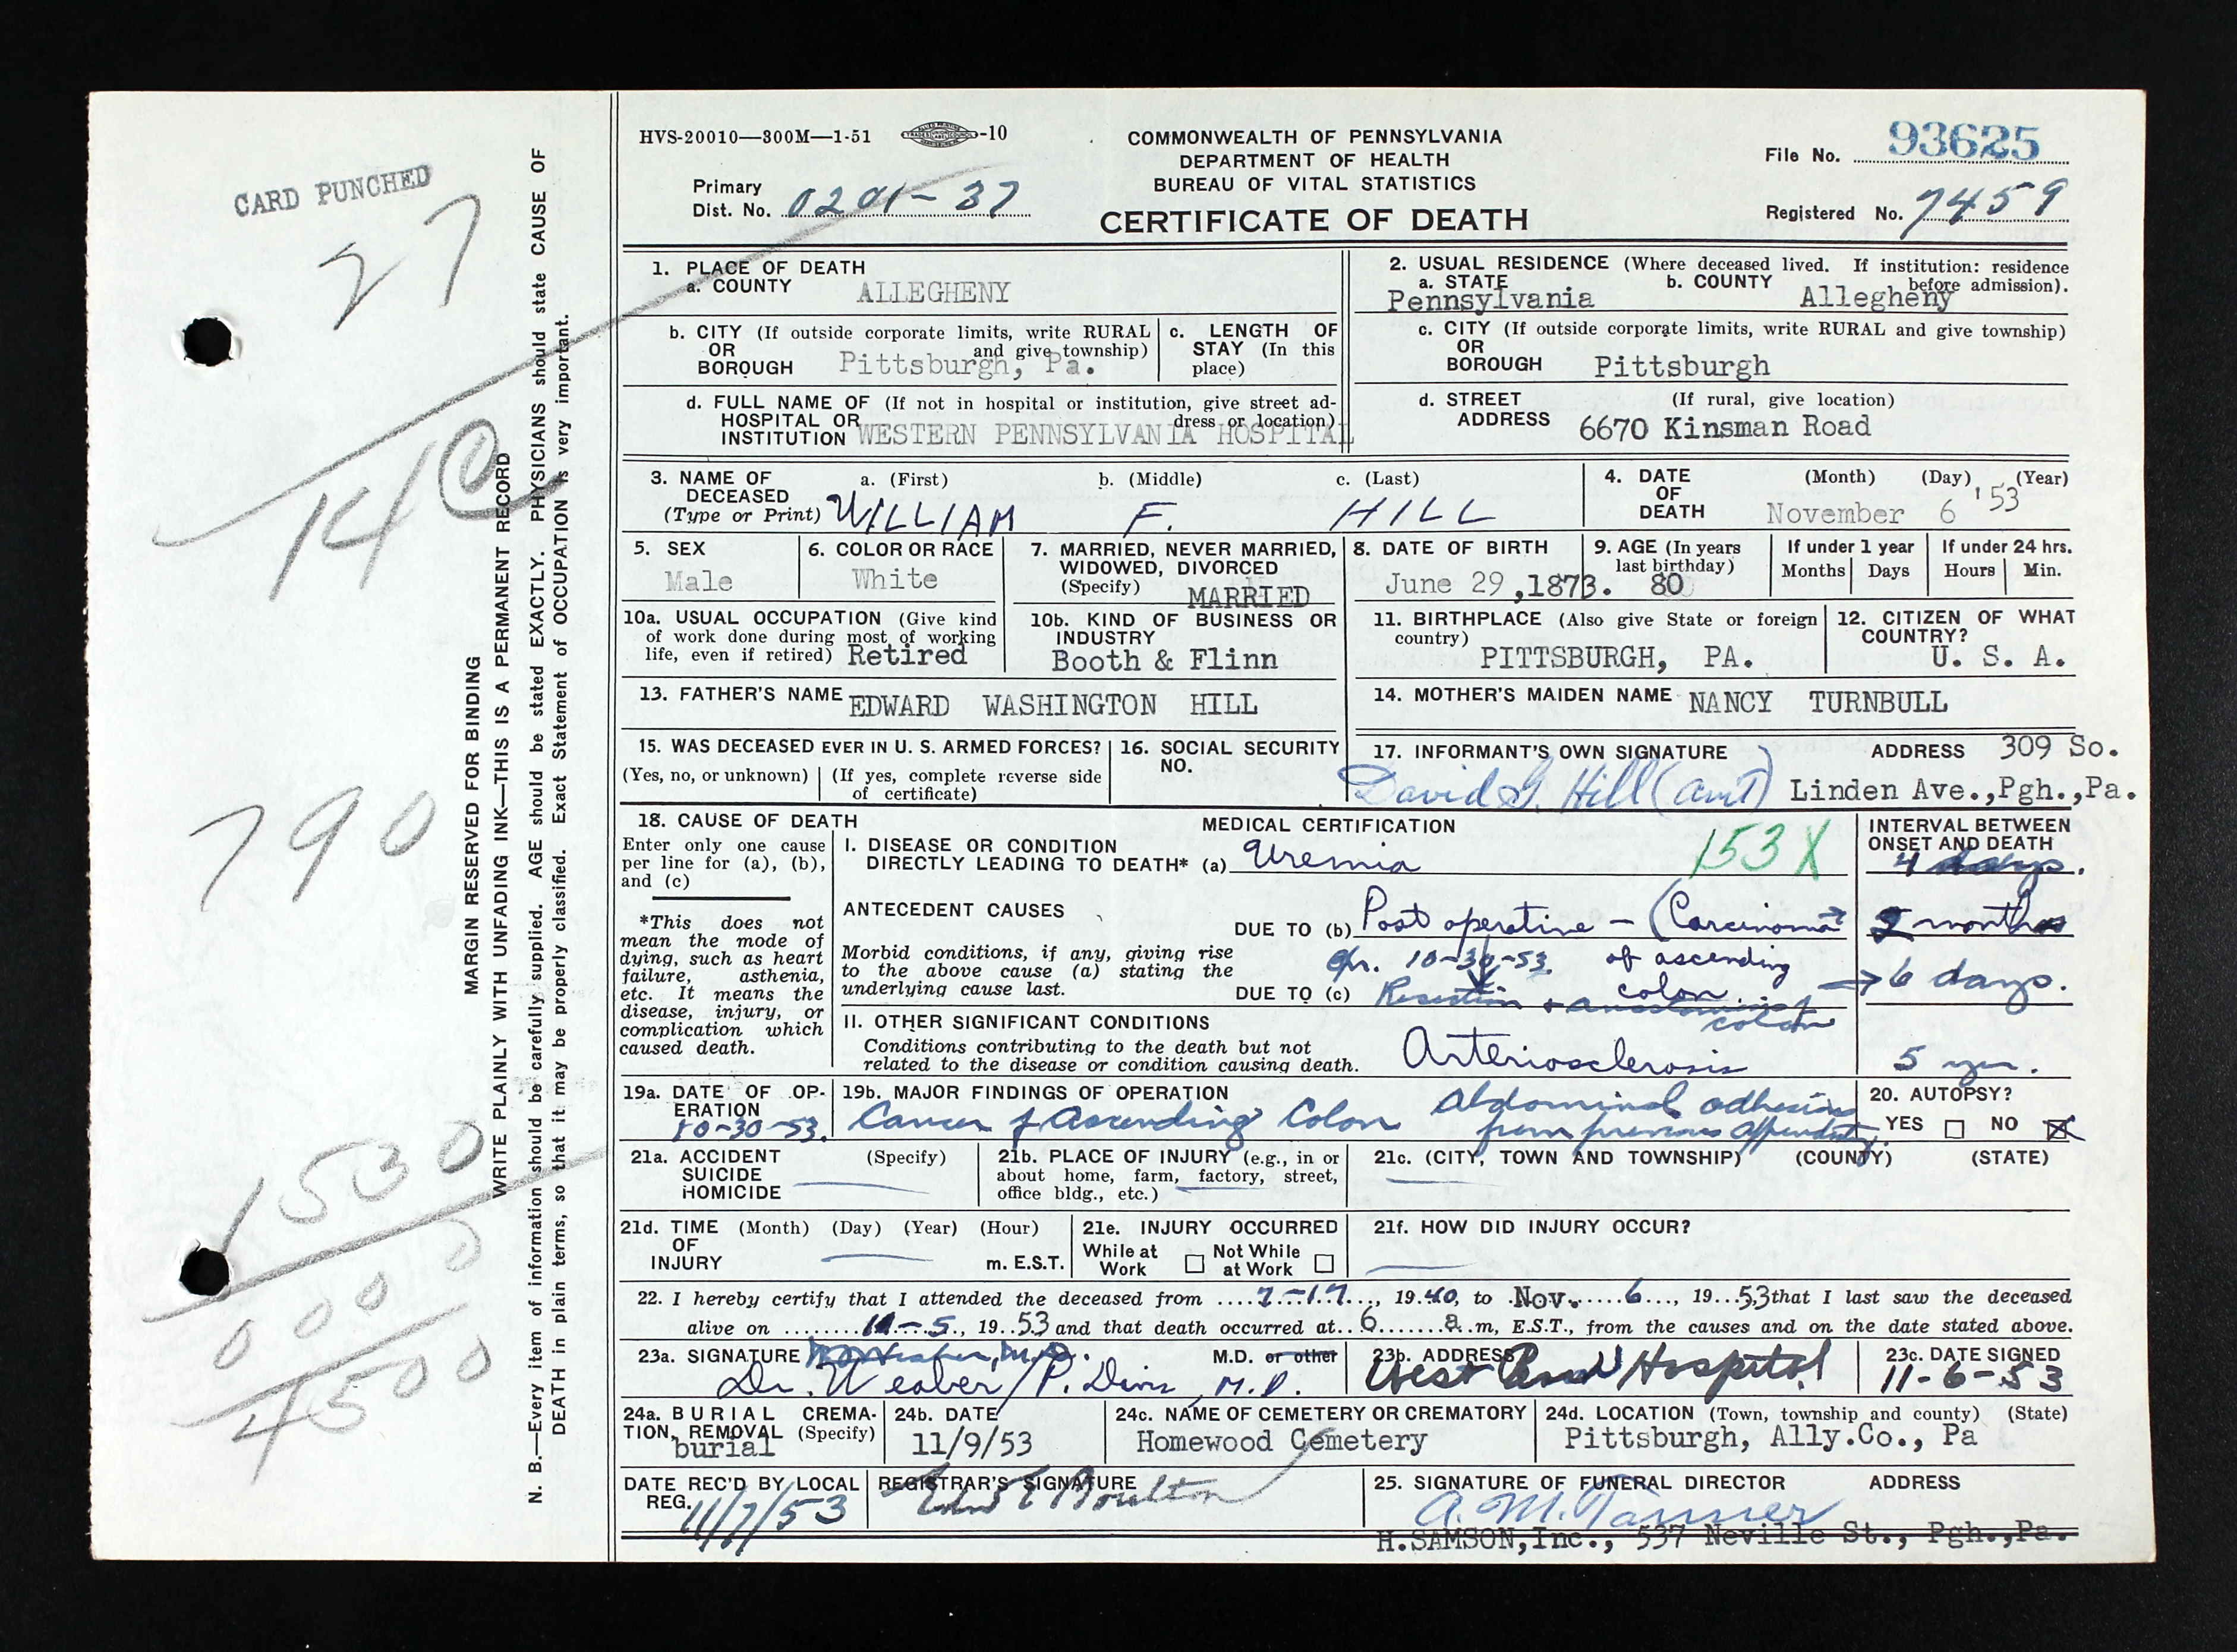 CARD PUNCHED
27
14
790
1530
000 0
4500
MARGIN RESERVED FOR BINDING
WRITE PLAINLY WITH UNFADING INK—THIS IS A PERMANENT RECORD
N. B.—Every item of information should be carefully supplied. AGE should be stated EXACTLY. PHYSICIANS should state CAUSE OF
DEATH in plain terms, so that it may be properly classified. Exact Statement of OCCUPATION is very important.
HVS-20010—300M—1-51 -10
COMMONWEALTH OF PENNSYLVANIA
DEPARTMENT OF HEALTH
BUREAU OF VITAL STATISTICS
CERTIFICATE OF DEATH
Primary
Dist. No. 0201-37
File No. 93625
Registered No. 7459
1. PLACE OF DEATH
a. COUNTY ALLEGHENY
2. USUAL RESIDENCE (Where deceased lived. If institution: residence
before admission).
a. STATE Pennsylvania b. COUNTY Allegheny
b. CITY (If outside corporate limits, write RURAL
OR and give township)
BOROUGH Pittsburgh, Pa.
c. LENGTH OF
STAY (In this
place)
c. CITY (If outside corporate limits, write RURAL and give township)
OR
BOROUGH Pittsburgh
d. FULL NAME OF (If not in hospital or institution, give street ad-
HOSPITAL OR dress or location)
INSTITUTION WESTERN PENNSYLVANIA HOSPITAL
d. STREET (If rural, give location)
ADDRESS 6670 Kinsman Road
3. NAME OF a. (First) b. (Middle) c. (Last)
DECEASED
(Type or Print) WILLIAM F. HILL
4. DATE (Month) (Day) (Year)
OF
DEATH November 6 '53
5. SEX
Male
6. COLOR OR RACE
White
7. MARRIED, NEVER MARRIED,
WIDOWED, DIVORCED
(Specify) MARRIED
8. DATE OF BIRTH
June 29,1873.
9. AGE (In years
last birthday)
80
If under 1 year
Months Days
If under 24 hrs.
Hours Min.
10a. USUAL OCCUPATION (Give kind
of work done during most of working
life, even if retired) Retired
10b. KIND OF BUSINESS OR
INDUSTRY
Booth & Flinn
11. BIRTHPLACE (Also give State or foreign
country)
PITTSBURGH, PA.
12. CITIZEN OF WHAT
COUNTRY?
U. S. A.
13. FATHER'S NAME EDWARD WASHINGTON HILL
14. MOTHER'S MAIDEN NAME NANCY TURNBULL
15. WAS DECEASED EVER IN U. S. ARMED FORCES?
(Yes, no, or unknown) (If yes, complete reverse side
of certificate)
16. SOCIAL SECURITY
NO.
17. INFORMANT'S OWN SIGNATURE ADDRESS 309 So.
David G. Hill Linden Ave.,Pgh.,Pa.
18. CAUSE OF DEATH
Enter only one cause
per line for (a), (b),
and (c)
*This does not
mean the mode of
dying, such as heart
failure, asthenia,
etc. It means the
disease, injury, or
complication which
caused death.
MEDICAL CERTIFICATION
153X
I. DISEASE OR CONDITION
DIRECTLY LEADING TO DEATH* (a) Uremia
ANTECEDENT CAUSES
DUE TO (b) Post operative - (Carcinoma
Morbid conditions, if any, giving rise
to the above cause (a) stating the
underlying cause last.
10-30-53. of ascending
colon
DUE TO (c) Resection
colon
II. OTHER SIGNIFICANT CONDITIONS
Conditions contributing to the death but not
related to the disease or condition causing death. Arteriosclerosis
INTERVAL BETWEEN
ONSET AND DEATH
4 days.
2 months
6 days.
5 yrs.
19a. DATE OF OP-
ERATION
10-30-53.
19b. MAJOR FINDINGS OF OPERATION
Cancer of Ascending Colon Abdominal adhesions
from previous
20. AUTOPSY?
YES NO
21a. ACCIDENT (Specify)
SUICIDE
HOMICIDE
21b. PLACE OF INJURY (e.g., in or
about home, farm, factory, street,
office bldg., etc.)
21c. (CITY, TOWN AND TOWNSHIP) (COUNTY) (STATE)
21d. TIME (Month) (Day) (Year) (Hour)
OF
INJURY m. E.S.T.
21e. INJURY OCCURRED
While at Not While
Work at Work
21f. HOW DID INJURY OCCUR?
22. I hereby certify that I attended the deceased from 7-17, 1940, to Nov. 6, 1953 that I last saw the deceased
alive on 11-5, 1953 and that death occurred at 6 a.m, E.S.T., from the causes and on the date stated above.
23a. SIGNATURE M.D. or other
Dr. Weaber M.D.
23b. ADDRESS
West Penn Hospital
23c. DATE SIGNED
11-6-53
24a. BURIAL CREMA-
TION, REMOVAL (Specify)
burial
24b. DATE
11/9/53
24c. NAME OF CEMETERY OR CREMATORY
Homewood Cemetery
24d. LOCATION (Town, township and county) (State)
Pittsburgh, Ally.Co., Pa
DATE REC'D BY LOCAL
REG. 11/7/53
REGISTRAR'S SIGNATURE
25. SIGNATURE OF FUNERAL DIRECTOR ADDRESS
A. M. Tanner
H.SAMSON,Inc., 537 Neville St., Pgh.,Pa.